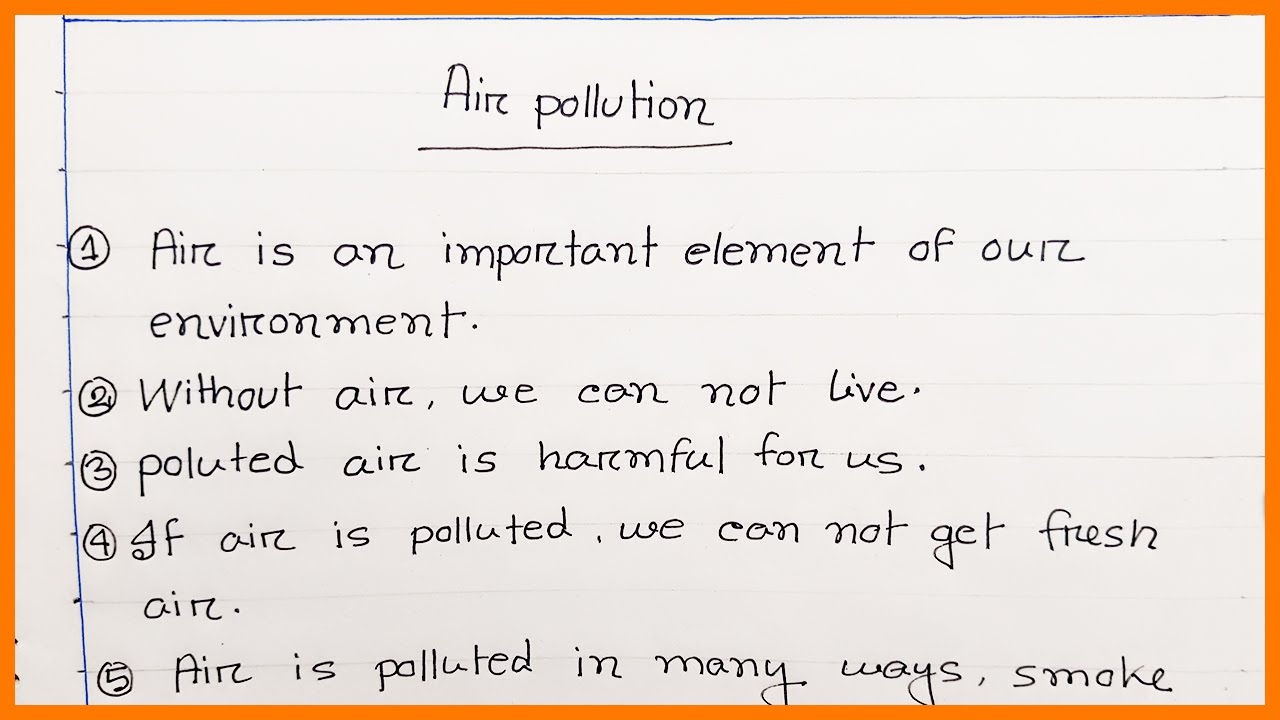 Air pollution
① Air is an important element of our
environment.
② Without air, we can not live.
③ poluted air is harmful for us.
④ If air is polluted, we can not get fresh
air.
⑤ Air is polluted in many ways, smoke